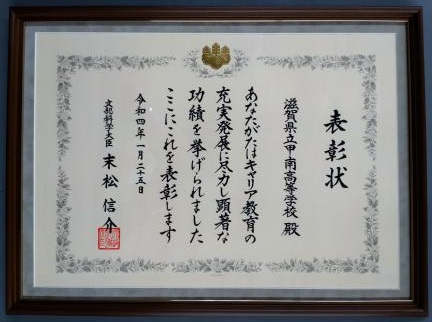 表彰状
滋賀県立甲南高等学校 殿
あなたがたはキャリア教育の
充実発展に尽力し顕著な
功績を挙げられました
ここにこれを表彰します
令和四年一月二十五日
文部科学大臣 末松信介